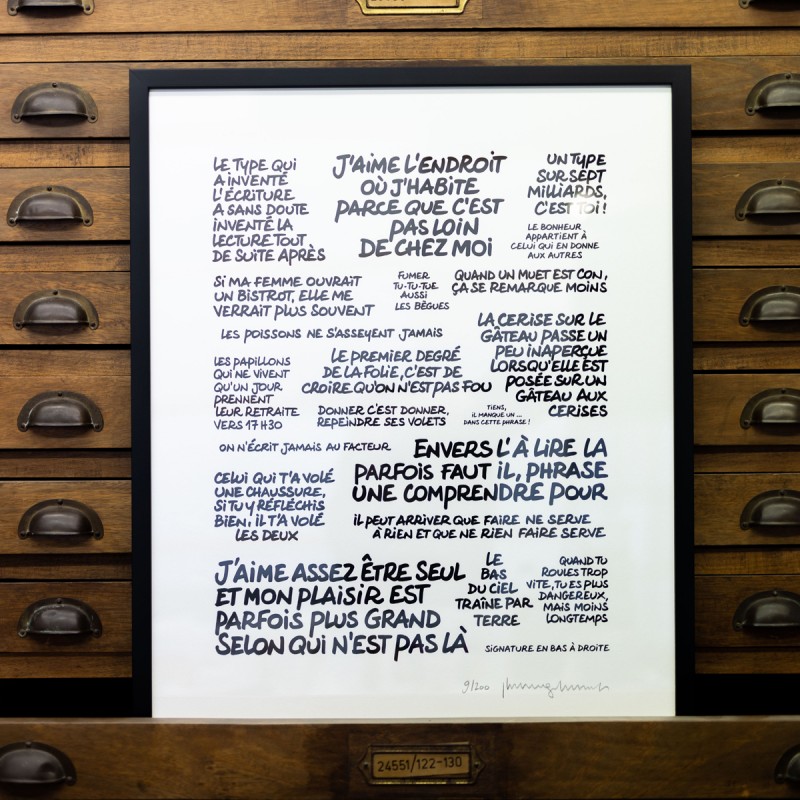 LE TYPE QUI
A INVENTÉ
L'ÉCRITURE
A SANS DOUTE
INVENTÉ LA
LECTURE TOUT
DE SUITE APRÈS
J'AIME L'ENDROIT
OÙ J'HABITE
PARCE QUE C'EST
PAS LOIN
DE CHEZ MOI
UN TYPE
SUR SEPT
MILLIARDS,
C'EST TOI !
LE BONHEUR
APPARTIENT À
CELUI QUI EN DONNE
AUX AUTRES
SI MA FEMME OUVRAIT
UN BISTROT, ELLE ME
VERRAIT PLUS SOUVENT
FUMER
TU·TU·TUE
AUSSI
LES BÈGUES
QUAND UN MUET EST CON,
ÇA SE REMARQUE MOINS
LES POISSONS NE S'ASSEYENT JAMAIS
LA CERISE SUR LE
GÂTEAU PASSE UN
PEU INAPERÇUE
LORSQU'ELLE EST
POSÉE SUR UN
GÂTEAU AUX
CERISES
LES PAPILLONS
QUI NE VIVENT
QU'UN JOUR
PRENNENT
LEUR RETRAITE
VERS 17 H30
LE PREMIER DEGRÉ
DE LA FOLIE, C'EST DE
CROIRE QU'ON N'EST PAS FOU
DONNER C'EST DONNER,
REPEINDRE SES VOLETS
TIENS,
IL MANQUE UN ...
DANS CETTE PHRASE !
ON N'ÉCRIT JAMAIS AU FACTEUR
ENVERS L'À LIRE LA
PARFOIS FAUT IL, PHRASE
UNE COMPRENDRE POUR
CELUI QUI T'A VOLÉ
UNE CHAUSSURE,
SI TU Y RÉFLÉCHIS
BIEN, IL T'A VOLÉ
LES DEUX
IL PEUT ARRIVER QUE FAIRE NE SERVE
À RIEN ET QUE NE RIEN FAIRE SERVE
J'AIME ASSEZ ÊTRE SEUL
ET MON PLAISIR EST
PARFOIS PLUS GRAND
SELON QUI N'EST PAS LÀ
LE
BAS
DU CIEL
TRAÎNE PAR
TERRE
QUAND TU
ROULES TROP
VITE, TU ES PLUS
DANGEREUX,
MAIS MOINS
LONGTEMPS
SIGNATURE EN BAS À DROITE
9/200
24551/122-130